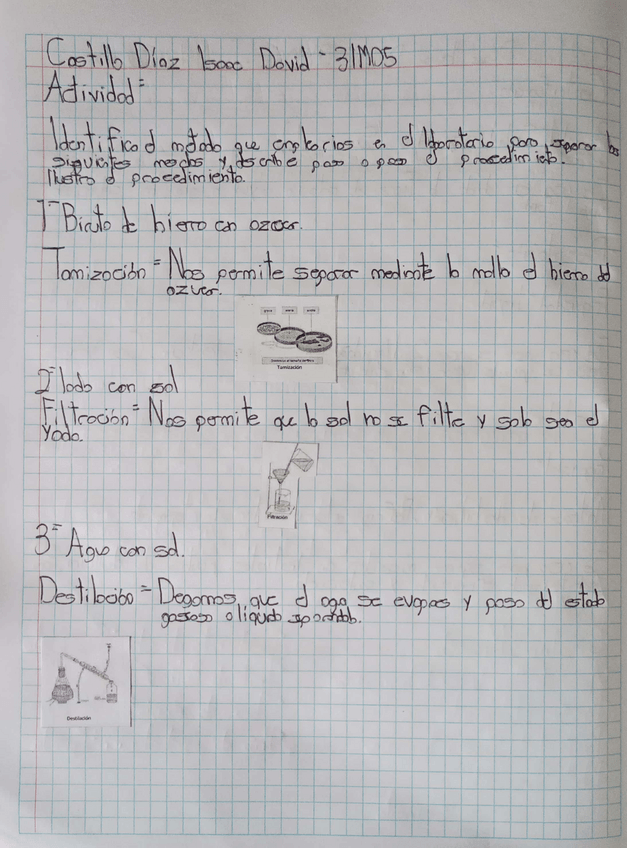 Castillo Díaz Isaac David - 3IM05
Actividad=
Identifica el método que emplearías en el laboratorio para separar las
siguientes mezclas y describe paso a paso el procedimiento.
Ilustra el procedimiento.
1- Viruta de hierro con azúcar.
Tamización = Nos permite separar mediante la malla el hierro del
azúcar.
Tamización
2- Iodo con sal
Filtración = Nos permite que la sal no se filtre y solo sea el
Yodo.
Filtración
3- Agua con sal.
Destilación = Degamos que el agua se evapore y pase del estado
gaseoso a líquido separándola.
Destilación